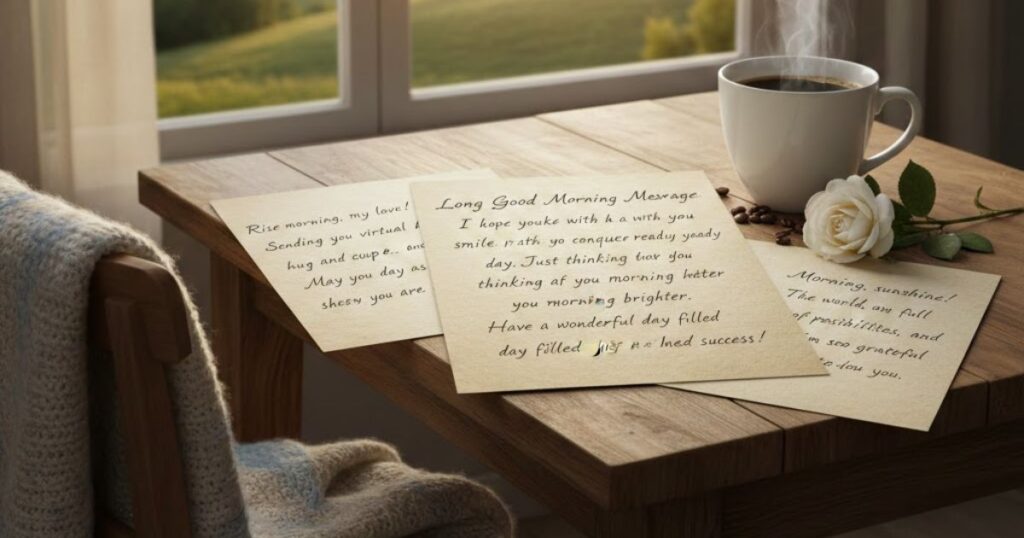 Rise morning, my love!
Sending you virtual
hug and cup e.. and
May you day as
shesy you are.
Long Good Morning Mesrage
I hope youke with h a wrth you
smile. r ath yo conquer ready yeady
day. Just thinking bor you
thinking af you morning hetter
you morning brighter.
Have a wonderful day filled
day filled lned success!
Morning, sunshine!
The world, am full
of posibilites, and
m soo grateful
you.